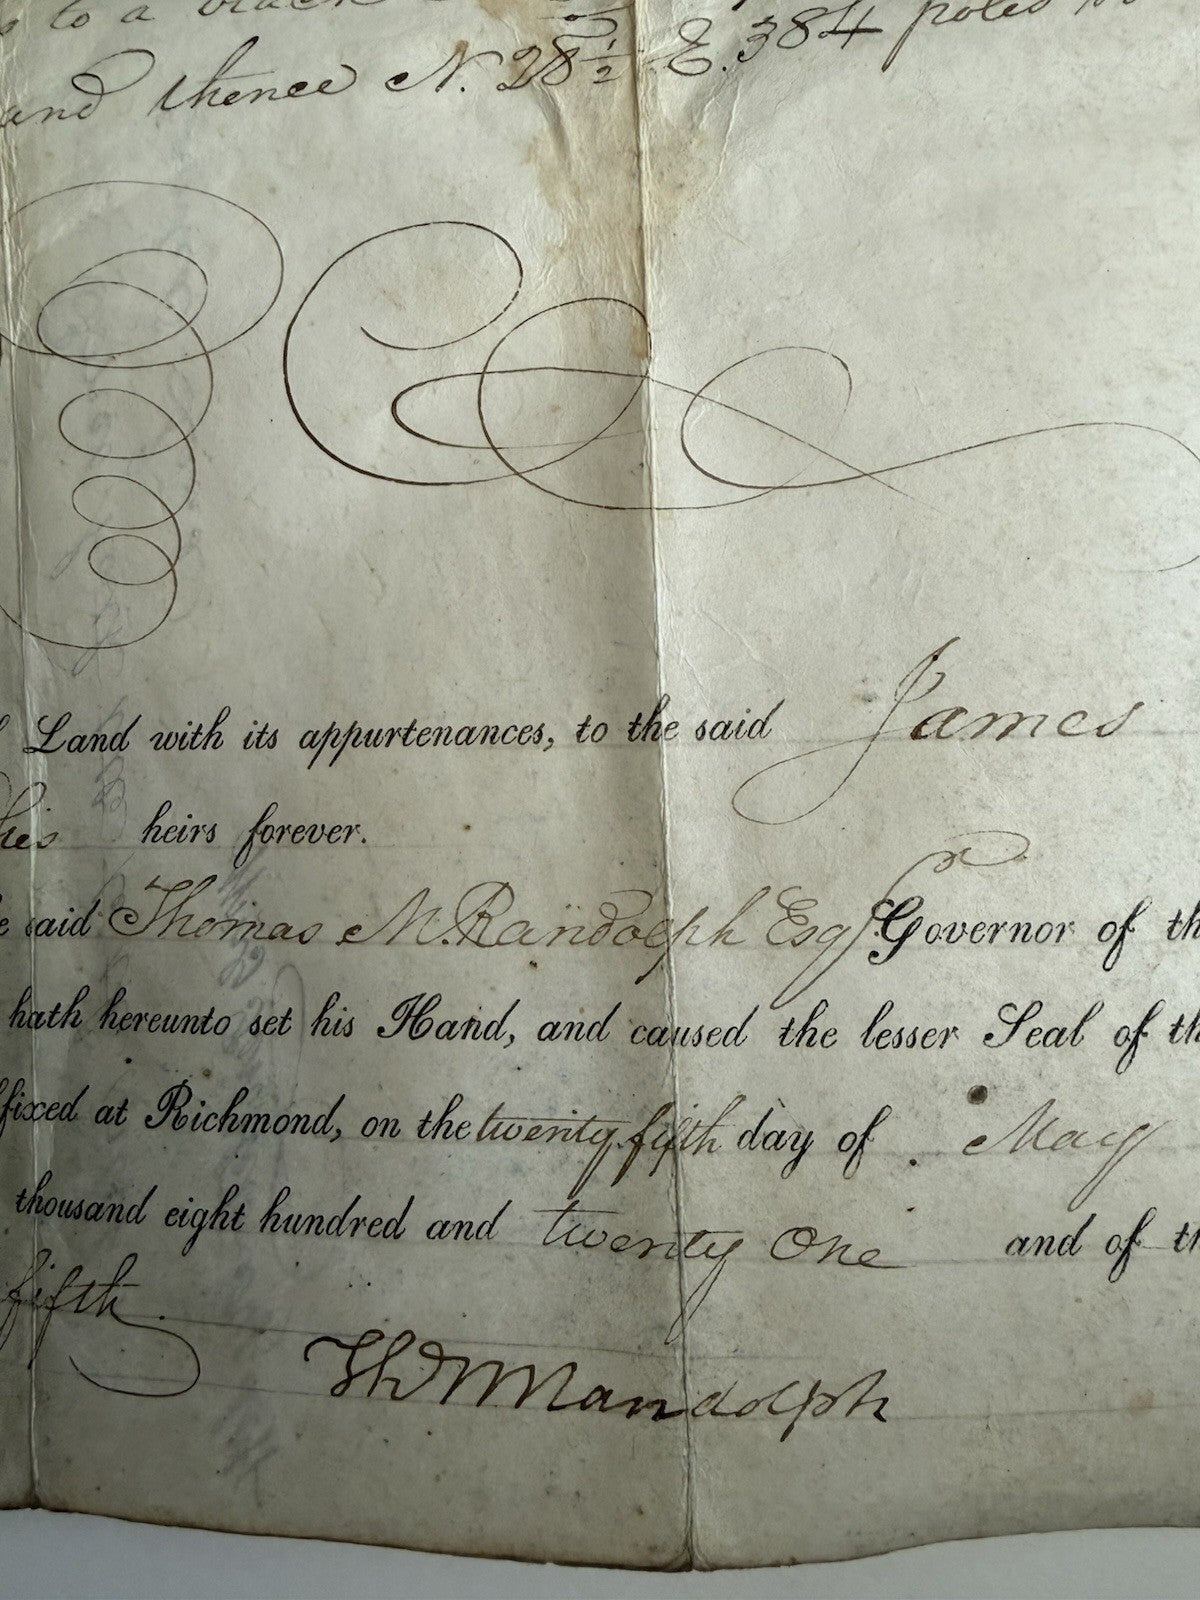 to a black
and thence N. 28 1/2 E. 384 poles
Land with its appurtenances, to the said James
his heirs forever.
said Thomas M. Randolph Esqr Governor of th
hath hereunto set his Hand, and caused the lesser Seal of th
ffixed at Richmond, on the twenty fifth day of May
thousand eight hundred and twenty One and of th
fifth.
Th M Randolph